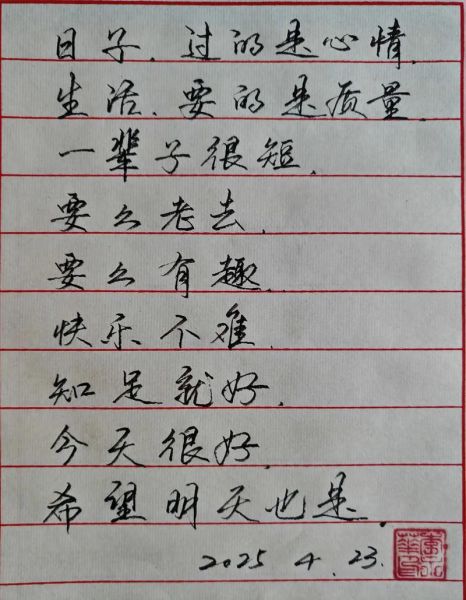 日子.过的是心情.
生活.要的是质量.
一辈子很短.
要么老去.
要么有趣.
快乐不难.
知足就好.
今天很好.
希望明天也是.
2025 4.23.